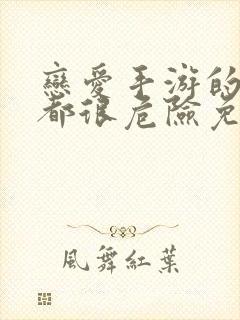 戀愛手游的
都很危險免
風舞紅葉